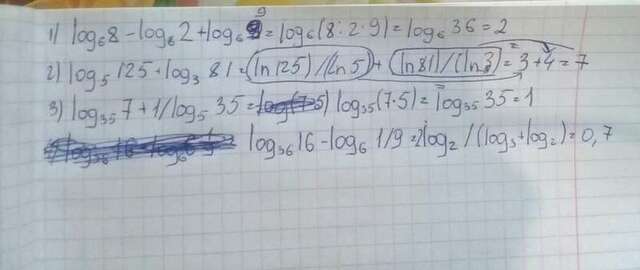 1) log₆8 - log₆2 + log₆9 = log₆(8:2·9) = log₆36 = 2
2) log₅125 + log₃81 = (ln125)/(ln5) + (ln81)/(ln3) = 3 + 4 = 7
3) log₃₅7 + 1/log₅35 = log₃₅(7·5) = log₃₅35 = 1
log₃₆16 - log₆1/9 = 2log₂/(log₃+log₂) = 0,7